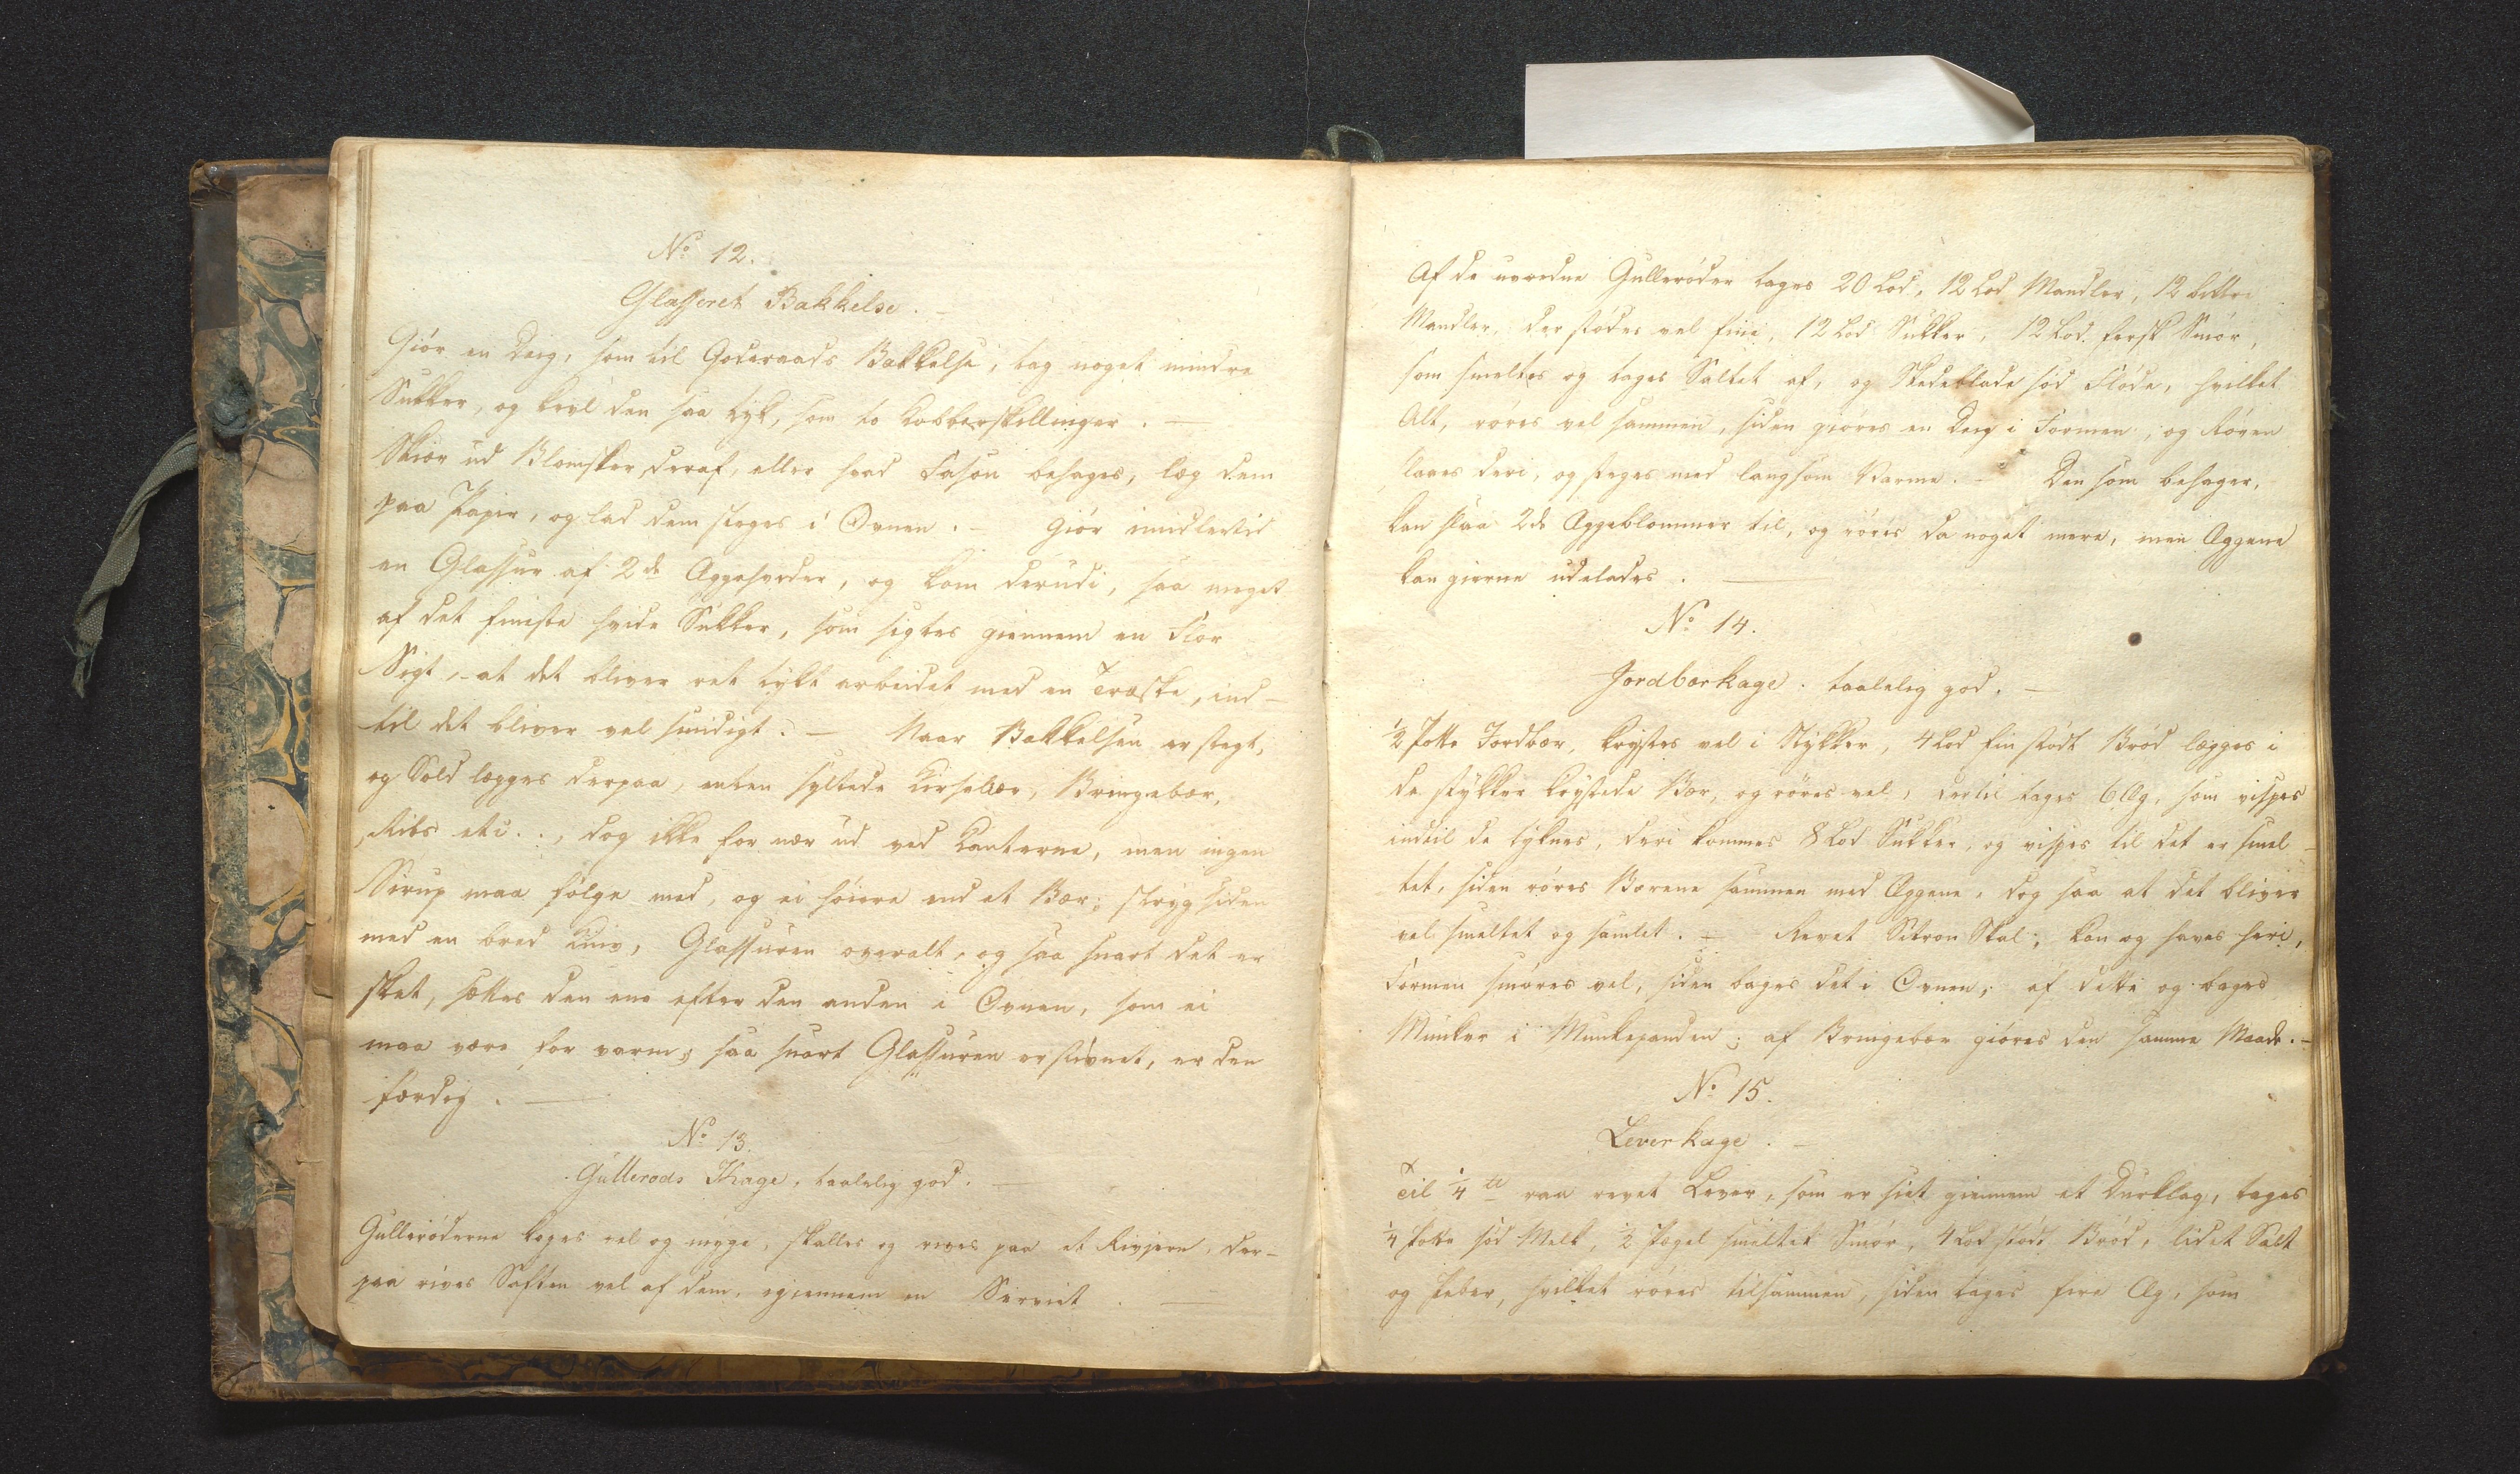 No 12.
Glasseret Bakkelse. -
Giör en Deig, som til Goderaads Bakkelse, tag noget mindre
Sukker, og kevl den saa tyk, som to Kobberskillinger. -
Skiær ud Blomster deraf, eller hvad Fason behages, læg dem
paa Papir, og lad dem steges i Ovnen. - Giör imidlertid
en Glassur af 2de Æggehvider, og kom derudi, saa meget
af det fineste hvide Sukker, som sigtes giennem en Flor
Sigt, at det bliver ret tykt arbeidet med en Træske, ind-
til det bliver vel smidigt. - Naar Bakkelsen er stegt,
og Kold lægges derpaa, enten syltede Kirsebær, Bringebær,
Ribs etc.., dog ikke for nær ud ved Kanterne, men ingen
Sirup maa fölge med, og ei höiere end et Bær; stryg siden
med en bred Kniv, Glassuren overalt, og saa snart det er
skeet, sættes den ene efter den anden i Ovnen, som ei
maa være for varm; saa snart Glassuren er stivnet, er den
færdig. -
No 13.
Gulleröds Kage, taalelig god. -
Gulleröderne koges vel og myge, skalles og rives paa et Rivjern, der-
paa vries Saften vel af dem, igiennem en Serviet. -
Af de uvredne Gulleröder tages 20 Lod, 12 Lod Mandler, 12 bittre
Mandler, der stödes vel fine, 12 Lod Sukker, 12 Lod fersk Smör,
som smeltes og tages Saltet af, og Skedeblade söd Flöde, hvilket
Alt, röres vel sammen, siden giöres en Deig i Formen, og Rören
laves deri, og steges med langsom Varme. - Den som behager,
kan slaa 2de Æggeblommer til, og röres da noget mere, men Æggene
kan gierne udelades. -
No 14.
Jordbærkage. taalelig god. -
1/2 Potte Jordbær, krystes vel i Stykker, 4 Lod fin stödt Bröd lægges i
de stykker krystede Bær, og röres vel, dertil tages 6 Æg, som vispes
indtil de tyknes, deri kommes 8 Lod Sukker, og vispes til det er smel-
tet, siden röres Bærene sammen med Æggene, dog saa at det bliver
vel smeltet og samlet. - Revet Sitron Skal, kan og haves heri,
Formen smöres vel, siden bages det i Ovnen; af dette og bages
Munker i Munkepanden; af Bringebær giöres den samme Maade. -
No 15.
Leverkage. -
Til 1/4 te raa revet Lever, som er siet giennem et Durklag, tages
1/4 Potte söd Melk, 1/2 Pægel smeltet Smör, 4 Lod stödt Bröd, lidet Salt
og Peber, hvilket röres tilsammen, siden tages fire Æg, som